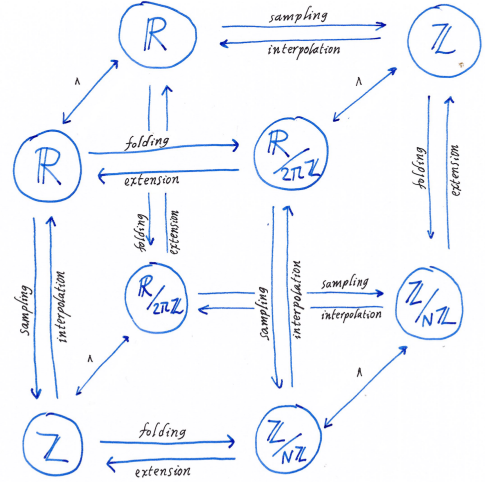 sampling
ℝ
ℤ
interpolation
^
^
folding
ℝ
ℝ/2πℤ
extension
folding
extension
folding
extension
sampling
interpolation
ℝ/2πℤ
sampling
interpolation
sampling
interpolation
ℤ/Nℤ
^
^
folding
ℤ
ℤ/Nℤ
extension